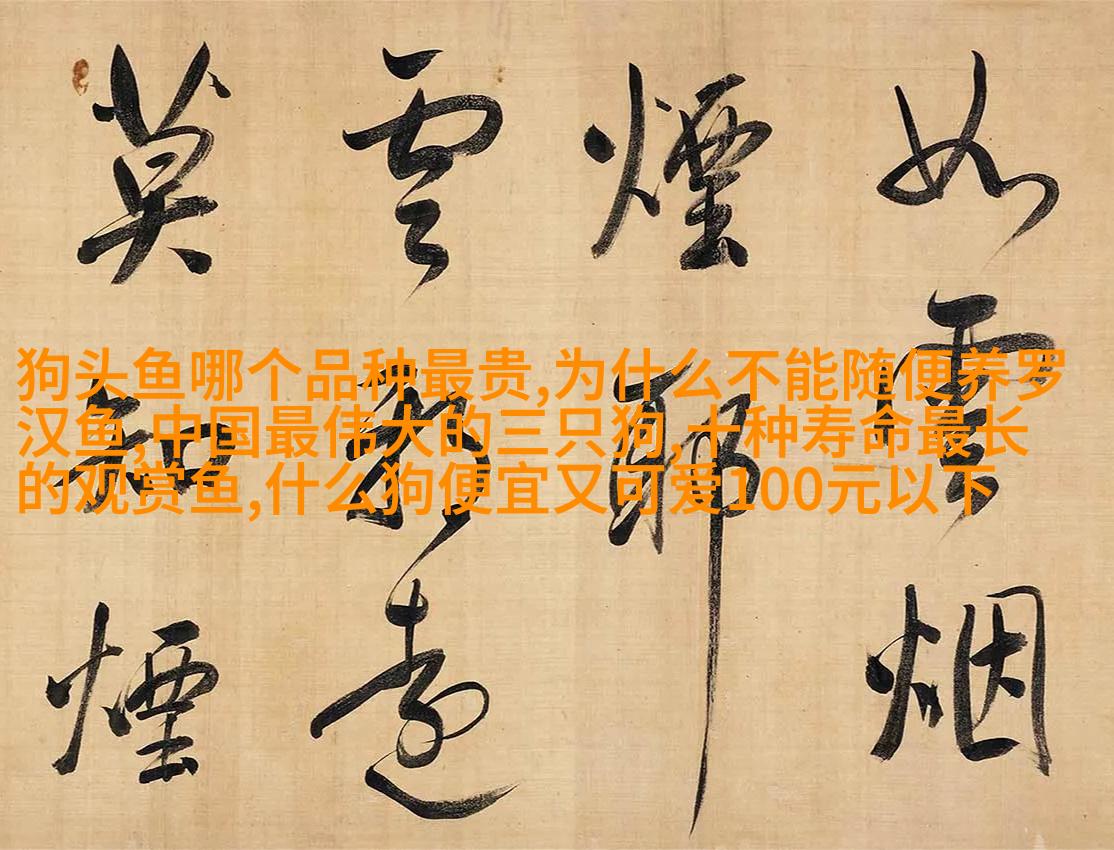 如雲烟
煙耶
雲遠
莫知煙
狗头鱼哪个品种最贵,为什么不能随便养罗
汉鱼,中国最伟大的三只狗,十种寿命最长
的观赏鱼,什么狗便宜又可爱100元以下